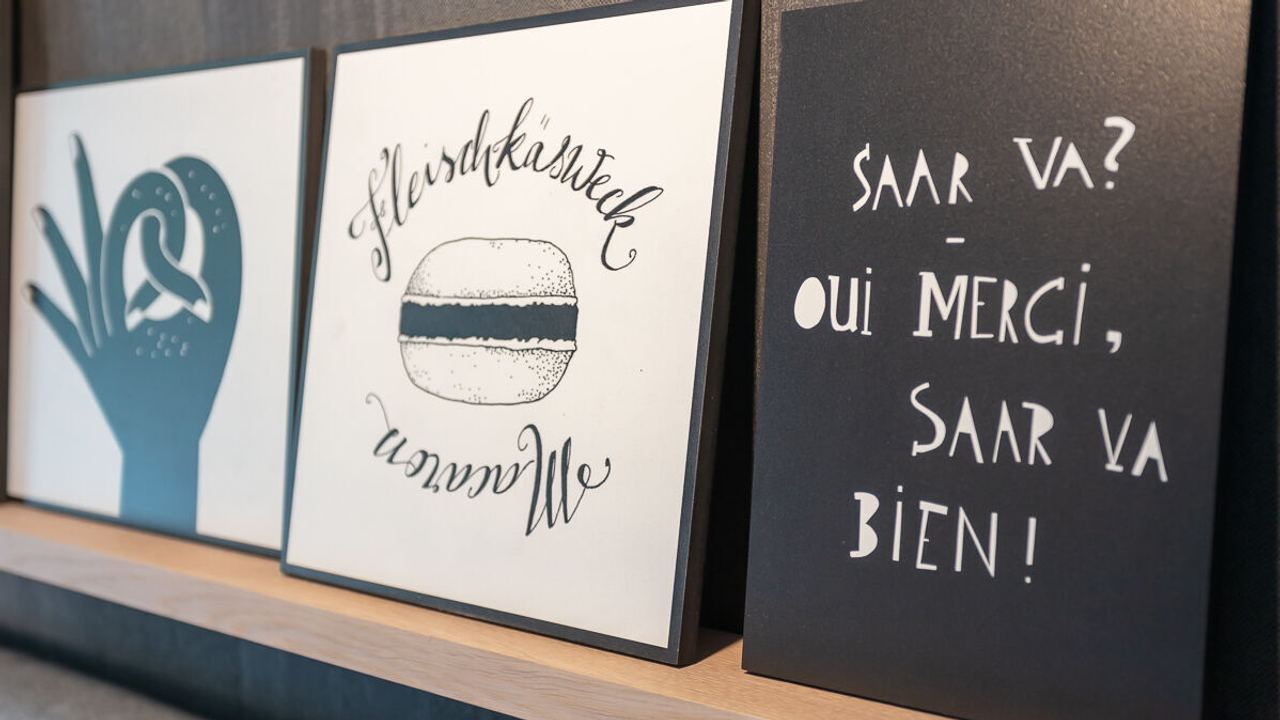 Fleischkäsweck
Macaron
SAAR VA?
–
OUi MERCi,
SAAR VA
BiEN!